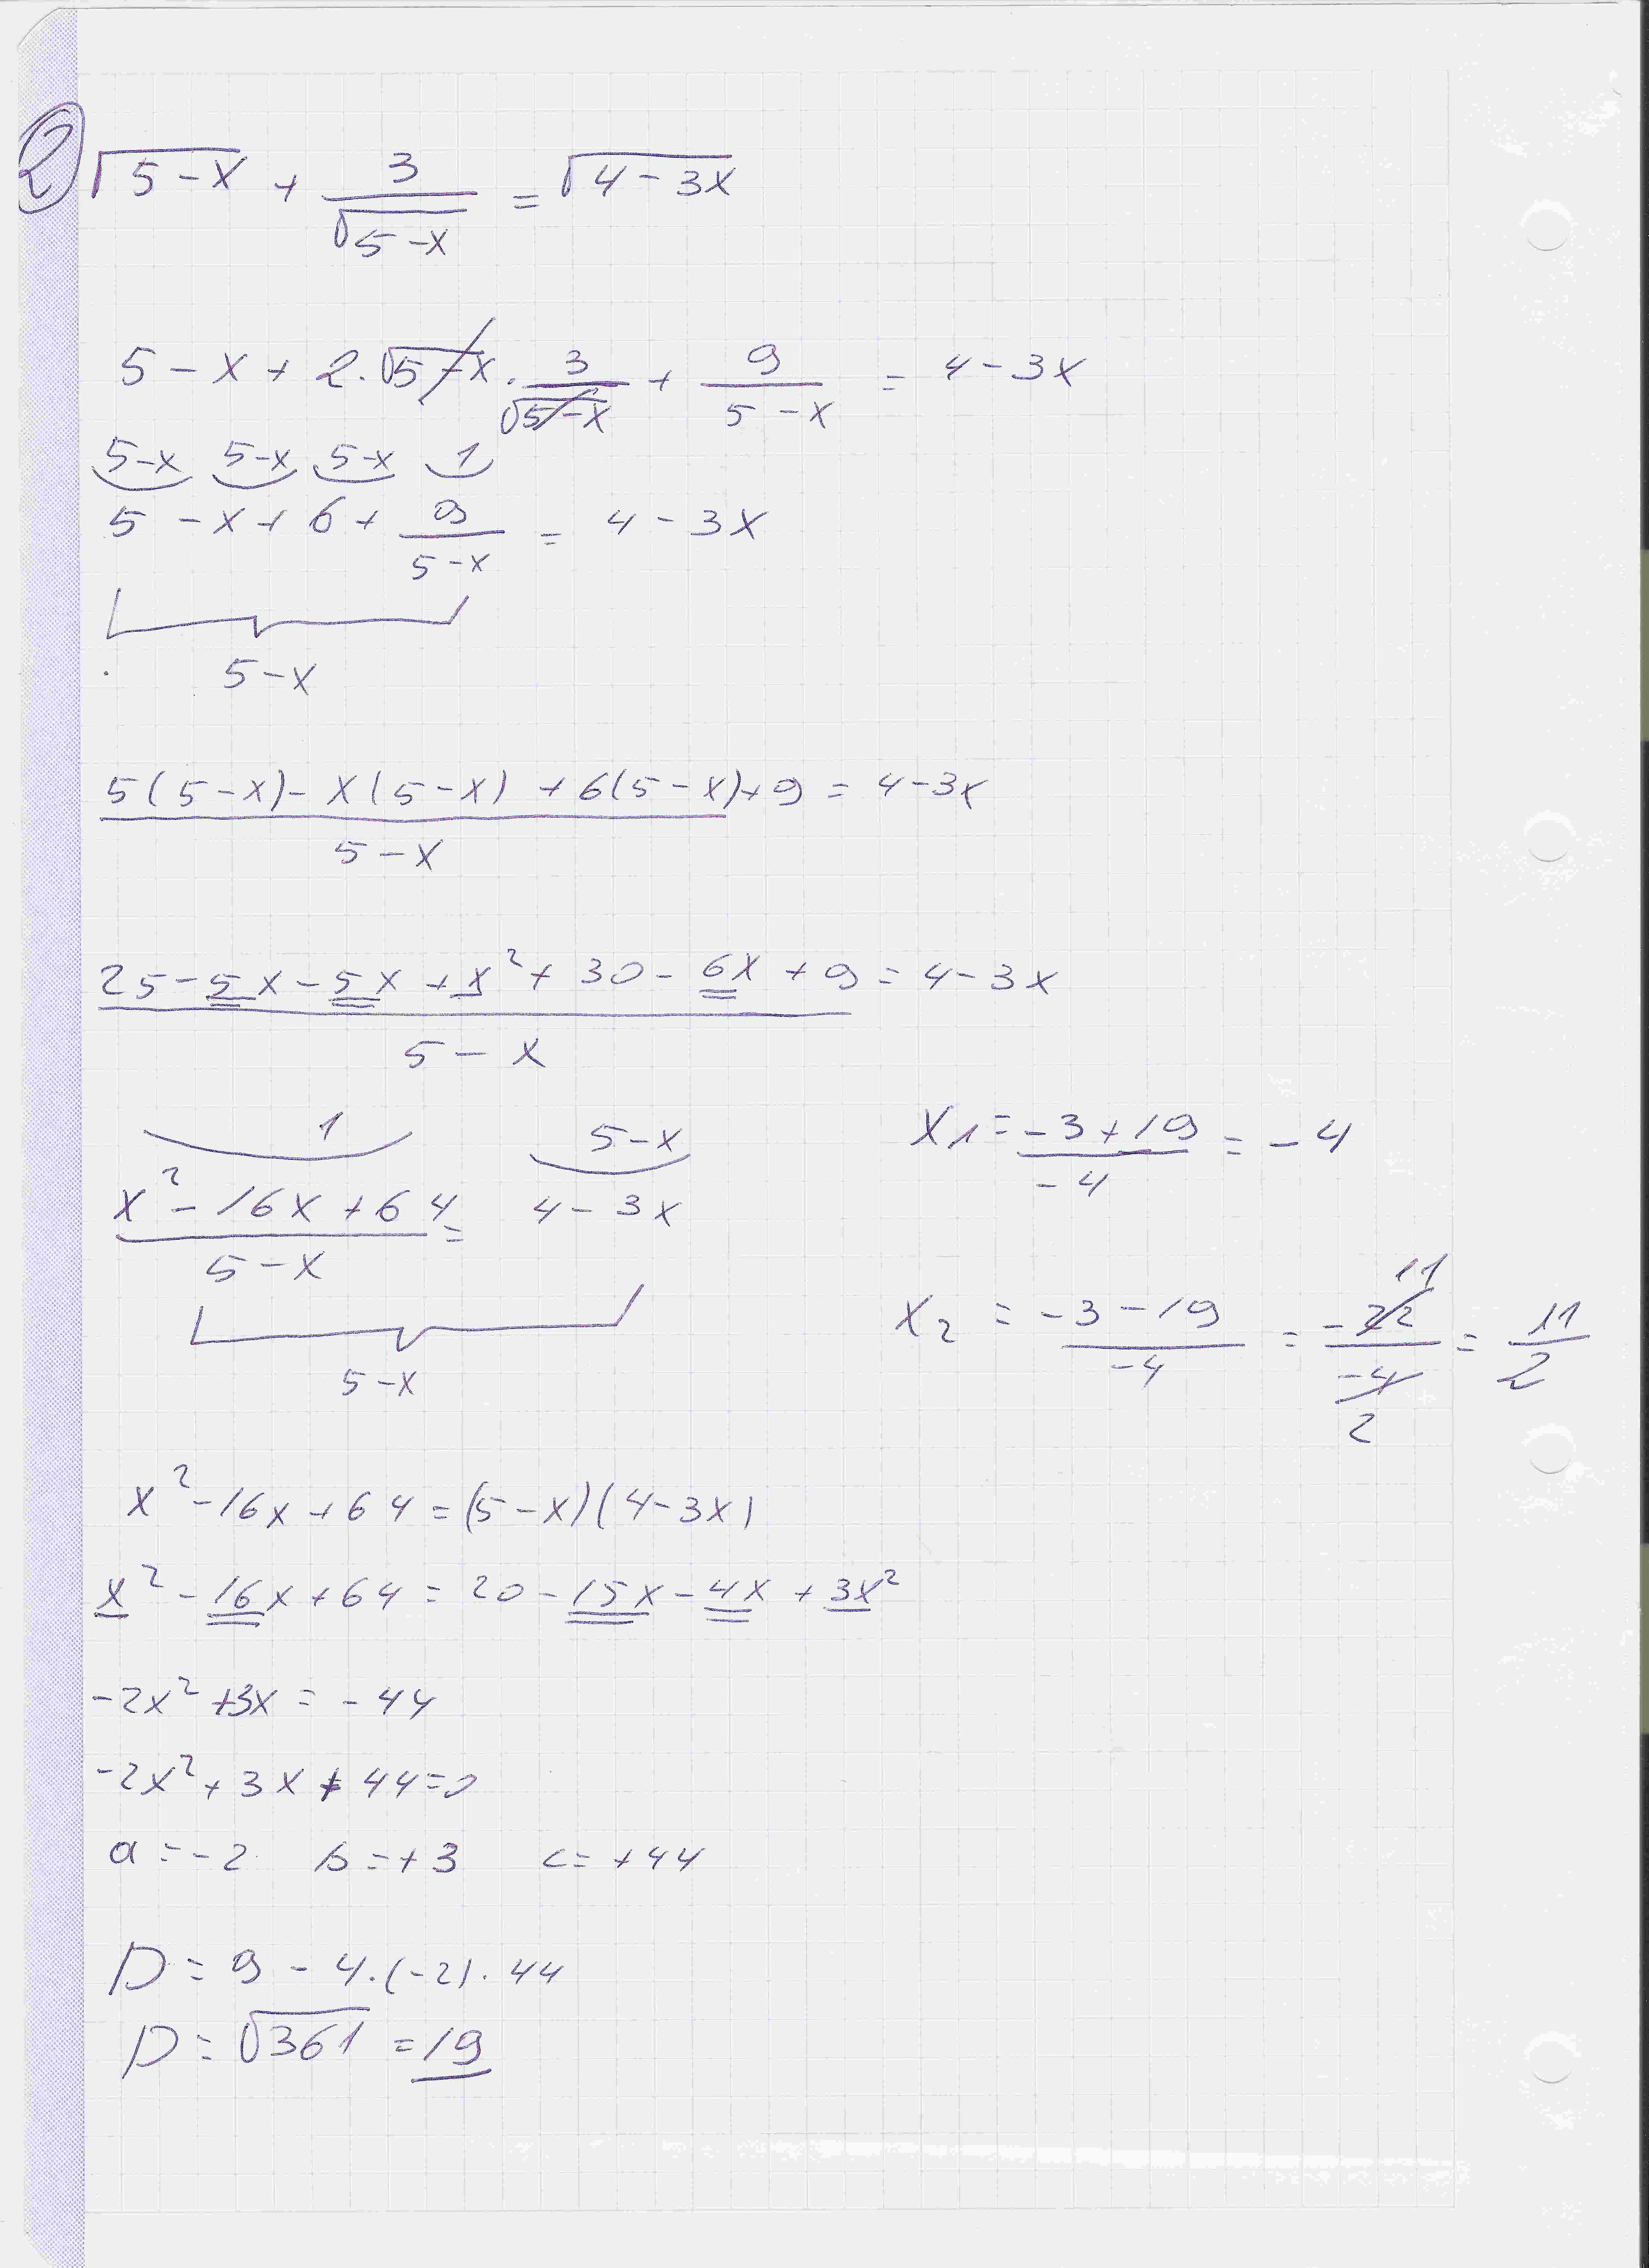 2
√(5-x) + 3/√(5-x) = √(4-3x)
5-x + 2·√(5-x)·3/√(5-x) + 9/(5-x) = 4-3x
5-x 5-x 5-x 1
5 - x + 6 + 9/(5-x) = 4 - 3x
5-x
5(5-x) - x(5-x) + 6(5-x) + 9 = 4-3x
5-x
25 - 5x - 5x + x² + 30 - 6x + 9 = 4-3x
5 - x
1 5-x
x² - 16x + 64 = 4 - 3x
5-x
5-x
x² - 16x + 64 = (5-x)(4-3x)
x² - 16x + 64 = 20 - 15x - 4x + 3x²
-2x² + 3x = -44
-2x² + 3x + 44 = 0
a = -2 b = +3 c = +44
D = 9 - 4·(-2)·44
D = √361 = 19
x₁ = (-3+19)/-4 = -4
11
x₂ = (-3-19)/-4 = -22/-4 = 11/2
2